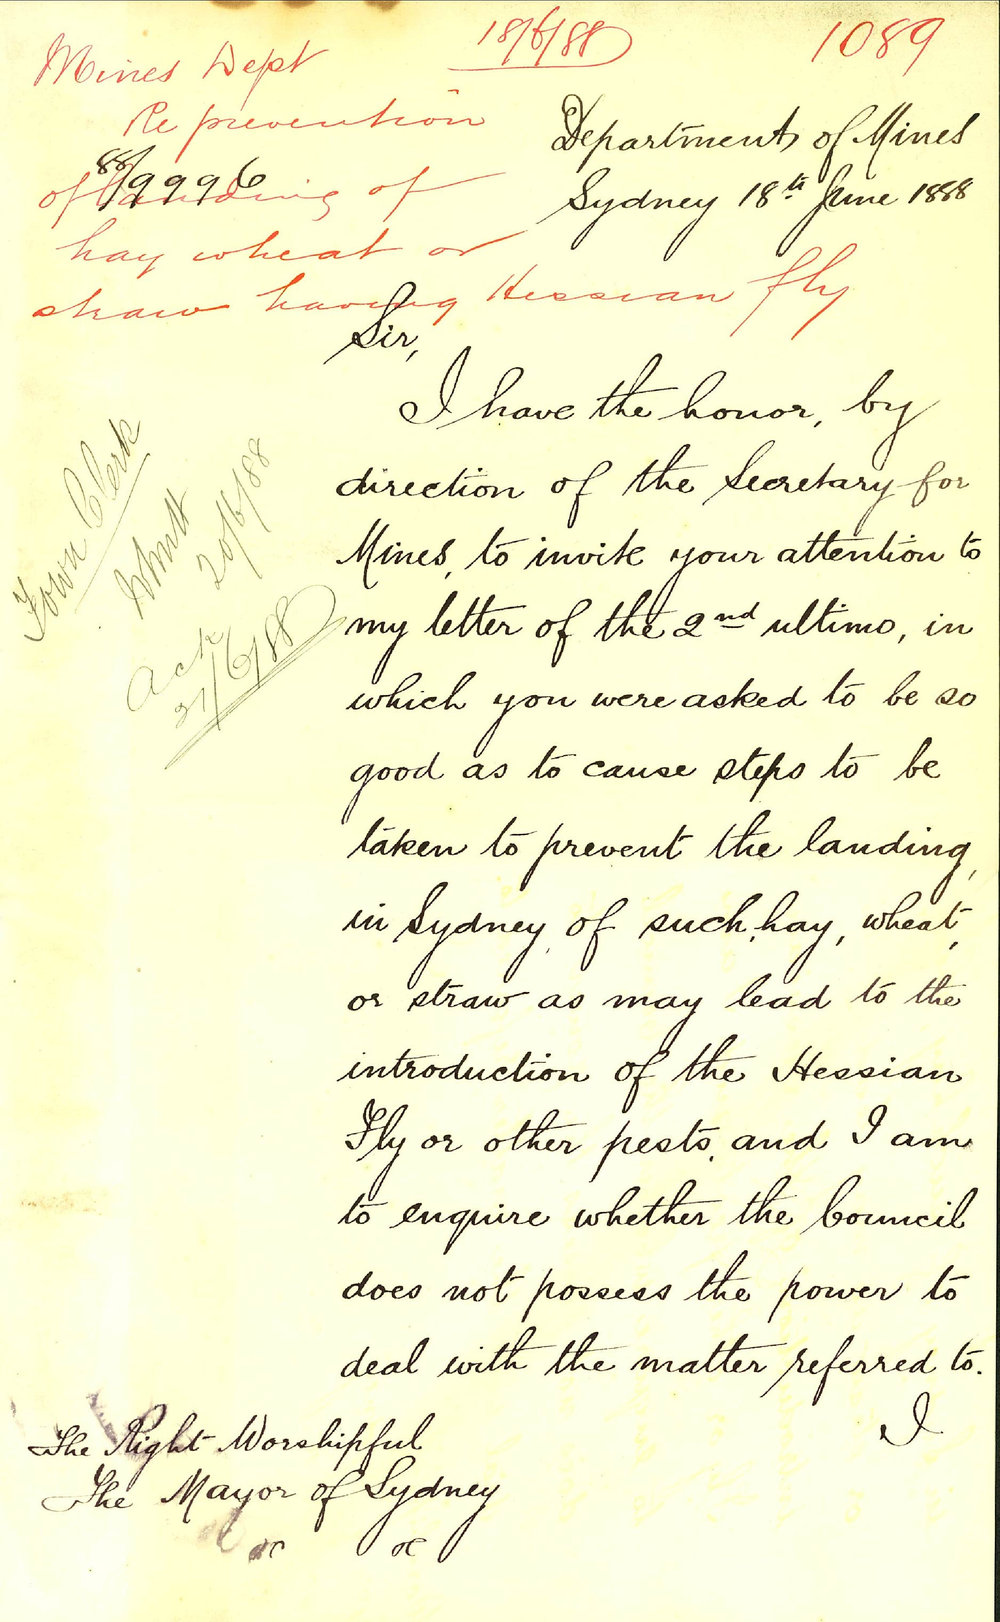 18/6/88
1089
Mines Dept
Re prevention
of landing of
hay wheat or
straw having Hessian fly
88/9996
Department of Mines
Sydney 18th June 1888
Sir,
I have the honor, by
direction of the Secretary for
Mines, to invite your attention to
my letter of the 2nd ultimo, in
which you were asked to be so
good as to cause steps to be
taken to prevent the landing,
in Sydney, of such, hay, wheat,
or straw as may lead to the
introduction of the Hessian
Fly or other pests, and I am
to enquire whether the Council
does not possess the power to
deal with the matter referred to.
I
Town Clerk
20/6/88
Ack
21/6/88
The Right Worshipful
The Mayor of Sydney
&c &c